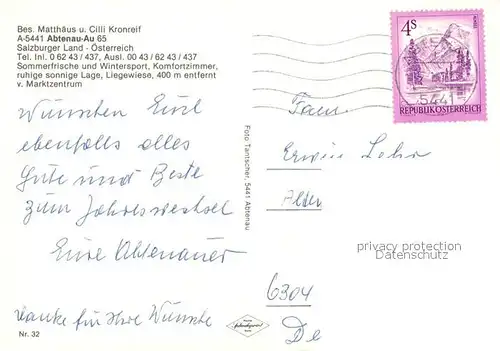 Bes. Matthäus u. Cilli Kronreif
A-5441 Abtenau-Au 65
Salzburger Land - Österreich
Tel. Inl. 0 62 43 / 437, Ausl. 00 43 / 62 43 / 437
Sommerfrische und Wintersport, Komfortzimmer,
ruhige sonnige Lage, Liegewiese, 400 m entfernt
v. Marktzentrum
Wünschen Euch
ebenfalls alles
Gute und Beste
zum Jahreswechsel
Eure Abtenauer
Danke für Ihre Wünsche
Nr. 32
Foto Tantscher, 5441 Abtenau
4S
5441
REPUBLIK ÖSTERREICH
Fam.
Erwin Lohr
privacy protection
Datenschutz
6304
De